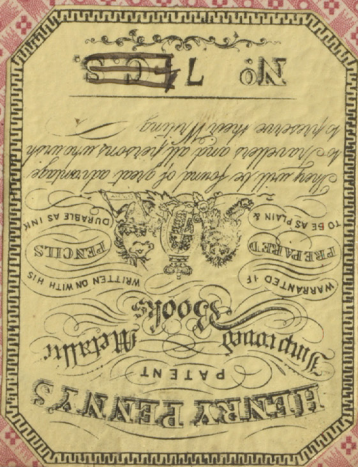 HENRY PENNY'S
PATENT
Improved Metallic
Books
WARRANTED IF WRITTEN ON WITH HIS
PREPARED PENCILS
TO BE AS PLAIN & DURABLE AS INK
They will be found of great advantage
to Travellers and all persons who wish
to preserve their Writing
No 74